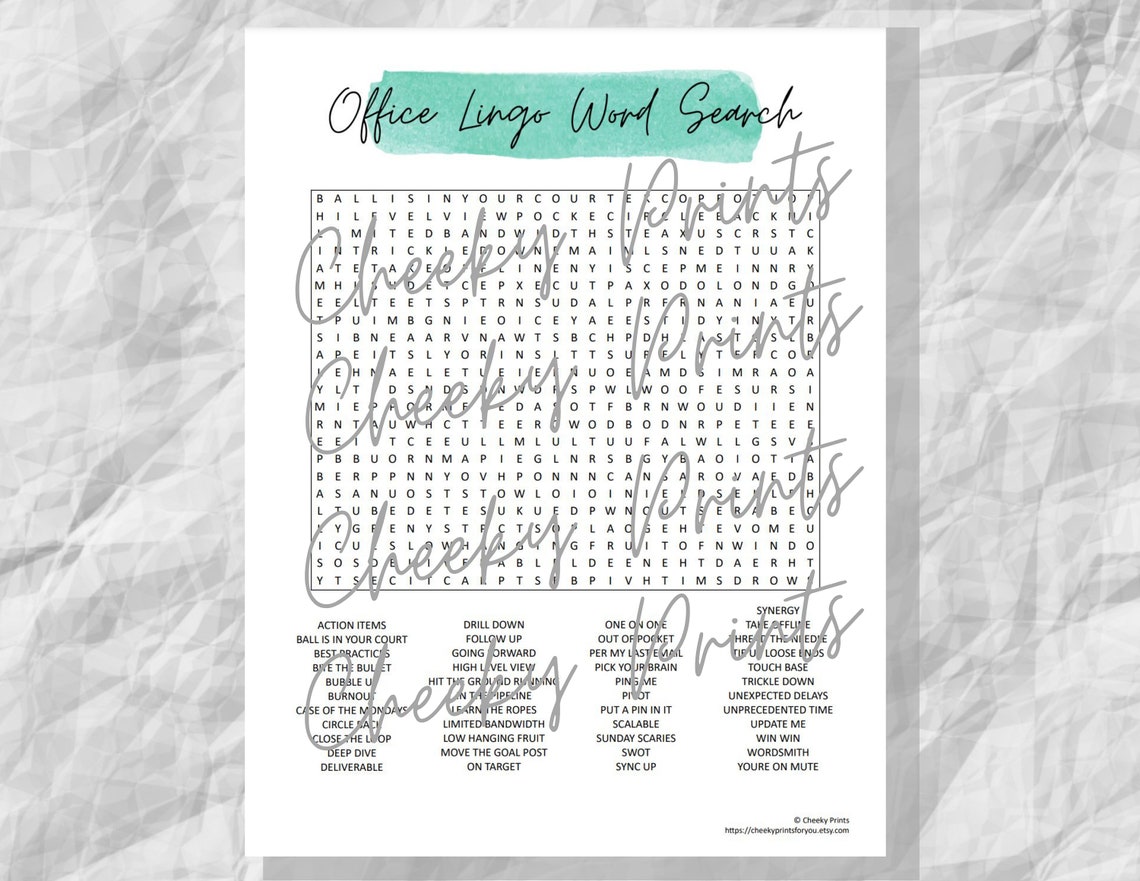 Office Lingo Word Search
B A L L I S I N Y O U R C O U R T E K C O P F O T U O
H I L E V E L V I E W P O C K E C I R C L E B A C K N I
L I M I T E D B A N D W I D T H S T E A X U S C R S T C
I N T R I C K L E D O W N E M A I N L S N E D T U U A K
A T E T A K E O F F L I N E N Y I S C E P M E I N N R Y
E E L T E E T S P T R N S U D A L P R F R N A N I A E U
T P U I M B G N I E O I C E Y A E E S T I D Y I N Y T R
S I B N E A A R V N A W T S B C H P D H
A P E I T S L Y O R I N S L T T S U
R N T A U W H C T T E E R T W O D B O D N R P E T E E E
P B B U O R N M A P I E G L N R S B G Y B A O I O T I A
B E R P P N N Y O V H P O N N N C A N S A R O V A E D B
A S A N U O S T S T O W L O I O I N I E L D S E
L T U B E D E T E S U K U E D P W N O U T S E R A B E C
I C U L S L O W H A N G I N G F R U I T O F N W I N D O
Y T S E C I T C A R P T S E B P I V H T I M S D R O W S
SYNERGY
ACTION ITEMS DRILL DOWN ONE ON ONE TAKE OFFLINE
BALL IS IN YOUR COURT FOLLOW UP OUT OF POCKET THREAD THE NEEDLE
BEST PRACTICES GOING FORWARD PER MY LAST EMAIL TIE UP LOOSE ENDS
BITE THE BULLET HIGH LEVEL VIEW PICK YOUR BRAIN TOUCH BASE
BUBBLE UP HIT THE GROUND RUNNING PING ME TRICKLE DOWN
BURNOUT IN THE PIPELINE PIVOT UNEXPECTED DELAYS
CASE OF THE MONDAYS LEARN THE ROPES PUT A PIN IN IT UNPRECEDENTED TIME
CIRCLE BACK LIMITED BANDWIDTH SCALABLE UPDATE ME
CLOSE THE LOOP LOW HANGING FRUIT SUNDAY SCARIES WIN WIN
DEEP DIVE MOVE THE GOAL POST SWOT WORDSMITH
DELIVERABLE ON TARGET SYNC UP YOURE ON MUTE
Cheeky Prints
Cheeky Prints
Cheeky Prints
Cheeky Prints
© Cheeky Prints
https://cheekyprintsforyou.etsy.com